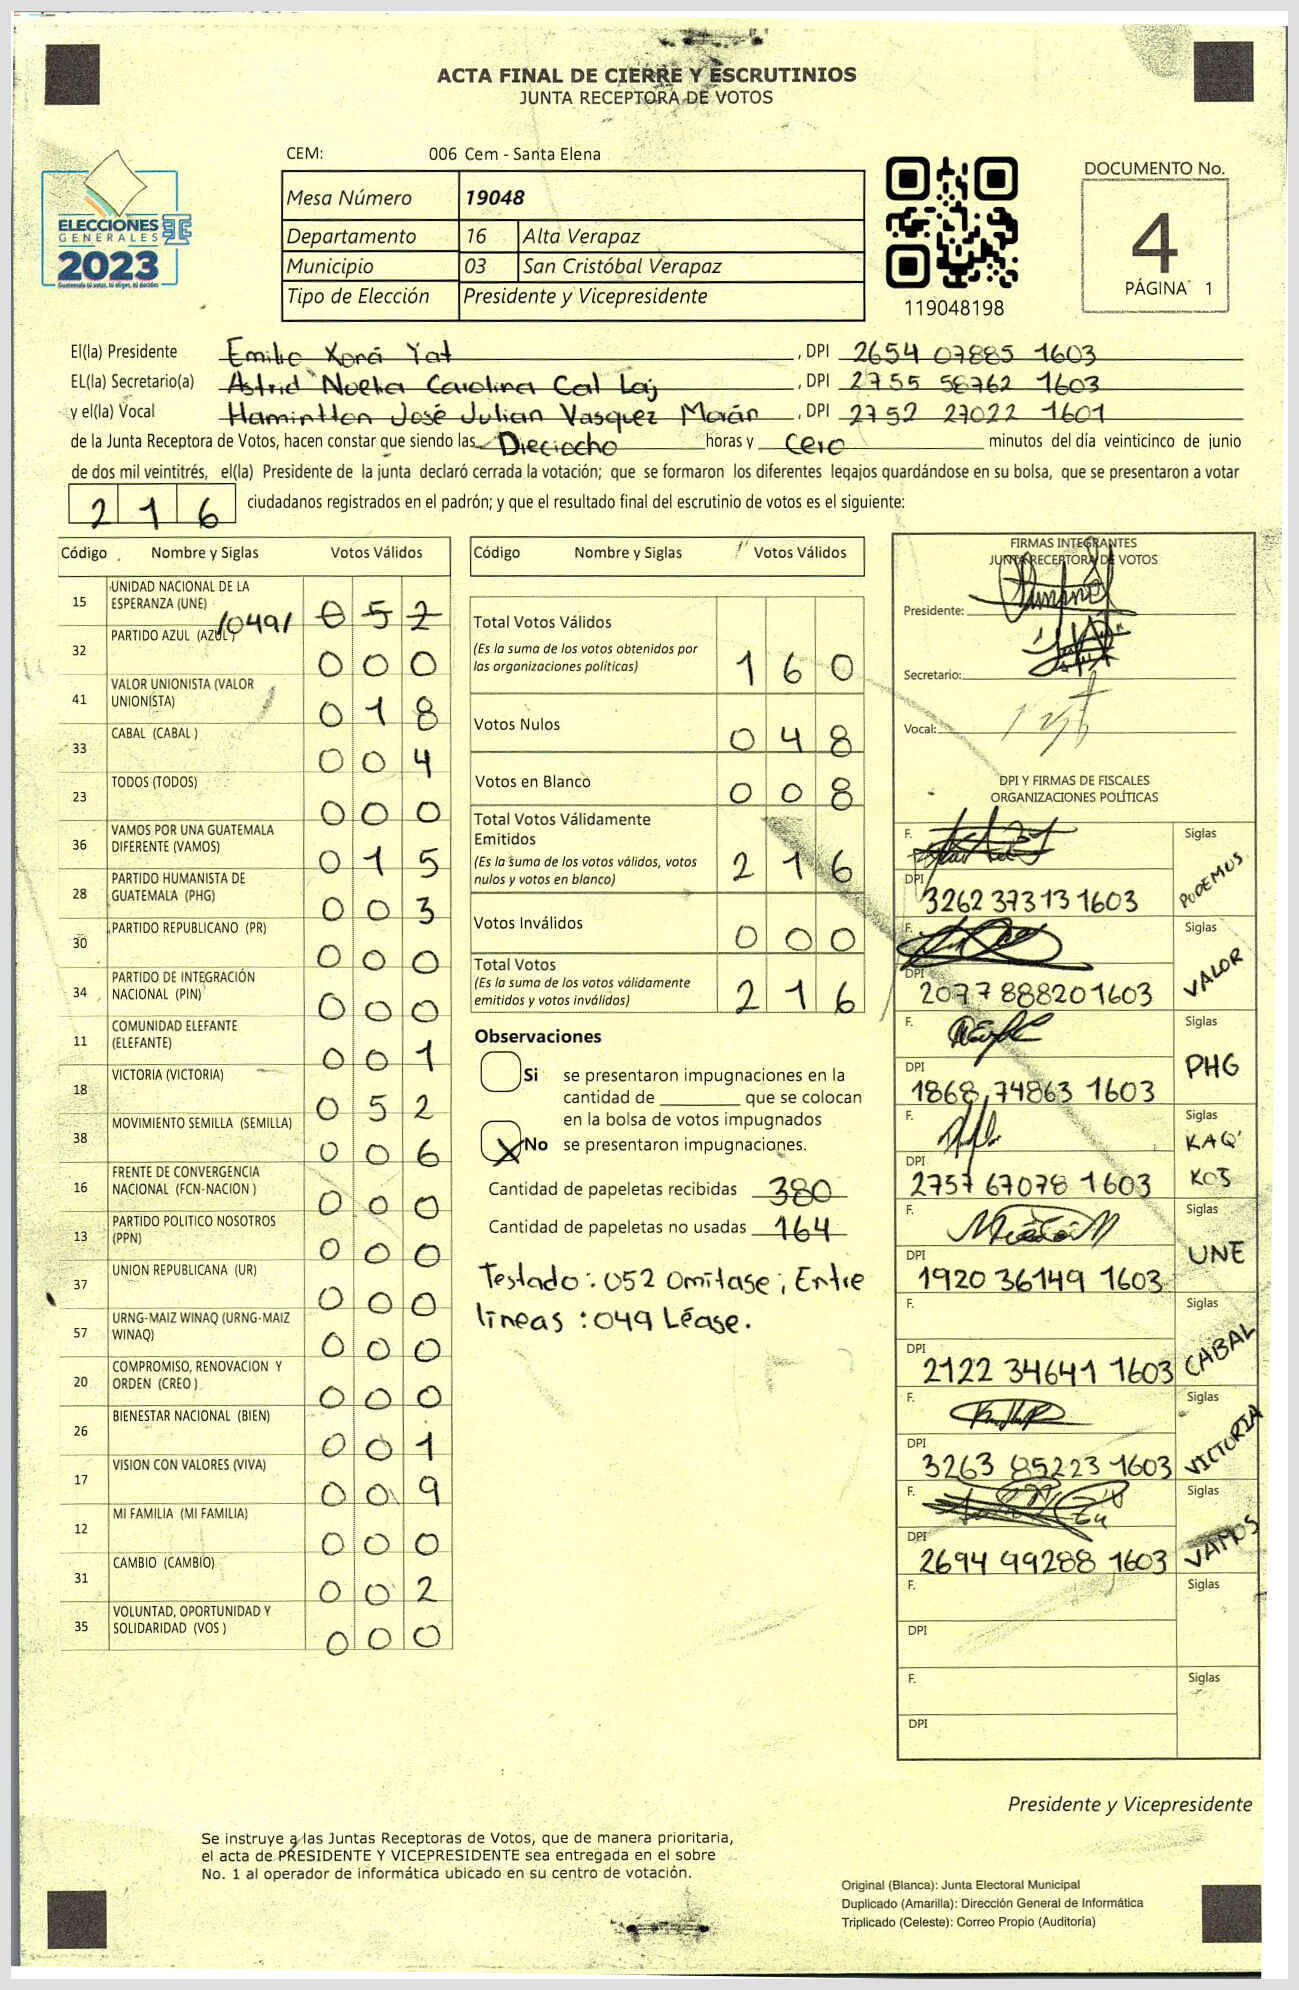 ACTA FINAL DE CIERRE Y ESCRUTINIOS
JUNTA RECEPTORA DE VOTOS
ELECCIONES
GENERALES
2023
Guatemala tú votas, tú eliges, tú decides
CEM: 006 Cem - Santa Elena
Mesa Número 19048
Departamento 16 Alta Verapaz
Municipio 03 San Cristóbal Verapaz
Tipo de Elección Presidente y Vicepresidente
119048198
DOCUMENTO No.
4
PÁGINA 1
El(la) Presidente Emilio Xoná Yat, DPI 2654 07885 1603
EL(la) Secretario(a) Astrid Noelia Carolina Cal Laj, DPI 2755 58762 1603
y el(la) Vocal Hamintton José Julian Vasquez Morán, DPI 2752 27022 1601
de la Junta Receptora de Votos, hacen constar que siendo las Dieciocho horas y Cero minutos del día veinticinco de junio
de dos mil veintitrés, el(la) Presidente de la junta declaró cerrada la votación; que se formaron los diferentes legajos guardándose en su bolsa, que se presentaron a votar
216 ciudadanos registrados en el padrón; y que el resultado final del escrutinio de votos es el siguiente:
Código Nombre y Siglas Votos Válidos
15 UNIDAD NACIONAL DE LA
ESPERANZA (UNE) /049/ 052
32 PARTIDO AZUL (AZUL) 000
41 VALOR UNIONISTA (VALOR
UNIONISTA) 018
33 CABAL (CABAL ) 004
23 TODOS (TODOS) 000
36 VAMOS POR UNA GUATEMALA
DIFERENTE (VAMOS) 015
28 PARTIDO HUMANISTA DE
GUATEMALA (PHG) 003
30 PARTIDO REPUBLICANO (PR) 000
34 PARTIDO DE INTEGRACIÓN
NACIONAL (PIN) 000
11 COMUNIDAD ELEFANTE
(ELEFANTE) 001
18 VICTORIA (VICTORIA) 052
38 MOVIMIENTO SEMILLA (SEMILLA) 006
16 FRENTE DE CONVERGENCIA
NACIONAL (FCN-NACION ) 000
13 PARTIDO POLITICO NOSOTROS
(PPN) 000
37 UNION REPUBLICANA (UR) 000
57 URNG-MAIZ WINAQ (URNG-MAIZ
WINAQ) 000
20 COMPROMISO, RENOVACION Y
ORDEN (CREO ) 000
26 BIENESTAR NACIONAL (BIEN) 001
17 VISION CON VALORES (VIVA) 009
12 MI FAMILIA (MI FAMILIA) 000
31 CAMBIO (CAMBIO) 002
35 VOLUNTAD, OPORTUNIDAD Y
SOLIDARIDAD (VOS ) 000
Código Nombre y Siglas Votos Válidos
Total Votos Válidos
(Es la suma de los votos obtenidos por
las organizaciones políticas) 160
Votos Nulos 048
Votos en Blanco 008
Total Votos Válidamente
Emitidos
(Es la suma de los votos válidos, votos
nulos y votos en blanco) 216
Votos Inválidos 000
Total Votos
(Es la suma de los votos válidamente
emitidos y votos inválidos) 216
Observaciones
Si se presentaron impugnaciones en la
cantidad de ________ que se colocan
en la bolsa de votos impugnados
X No se presentaron impugnaciones.
Cantidad de papeletas recibidas 380
Cantidad de papeletas no usadas 164
Testado: 052 Omítase; Entre
líneas: 049 Léase.
FIRMAS INTEGRANTES
JUNTA RECEPTORA DE VOTOS
Presidente:
Secretario:
Vocal:
DPI Y FIRMAS DE FISCALES
ORGANIZACIONES POLÍTICAS
F. Siglas
DPI 3262 37313 1603 PODEMOS
F. Siglas
DPI 2077 88820 1603 VALOR
F. Siglas
DPI 1868 74863 1603 PHG
F. Siglas
DPI 2757 67078 1603 KAQ' KOJ
F. Siglas
DPI 1920 36149 1603 UNE
F. Siglas
DPI 2122 34641 1603 CABAL
F. Siglas
DPI 3263 85223 1603 VICTORIA
F. Siglas
DPI 2694 99288 1603 VAMOS
F. Siglas
DPI
F. Siglas
DPI
Presidente y Vicepresidente
Se instruye a las Juntas Receptoras de Votos, que de manera prioritaria,
el acta de PRESIDENTE Y VICEPRESIDENTE sea entregada en el sobre
No. 1 al operador de informática ubicado en su centro de votación.
Original (Blanca): Junta Electoral Municipal
Duplicado (Amarilla): Dirección General de Informática
Triplicado (Celeste): Correo Propio (Auditoría)